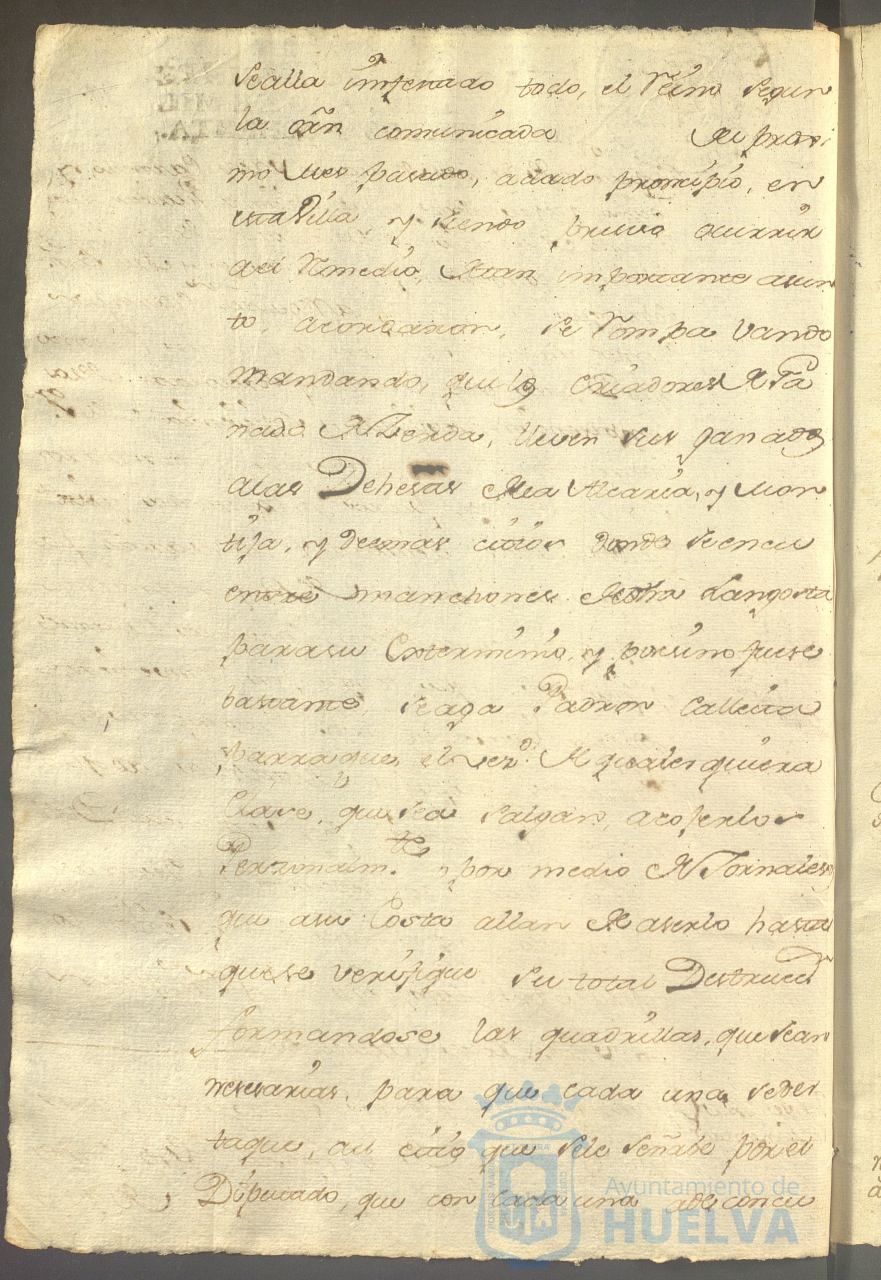 Sealla imfenado todo, el Reino segun
la orn comunicada del proxi
mo Mes pasado, adado prencipio, en
esta Villa, y siendo preciso ocurrir
del Remedio, de tan importante asun
to, acordaron, se Rompa Vando
mandando, que los Criadores de Ga
nado de Zerda, lleven sus ganados
alas Dehesas de la Alcaria, y Mon
tija, y demas citios donde se encu
entre manchones de otra Langosta
para su Exterminio, y por si no fuese
bastante se aga Padron Calleita
parra que el vezo. de qualesquiera
Clase, que sea salgan, acojerlos
Perzonalmte. y por medio de Jornales
que asu Costa allan de aserlo hasta
quese verifique su total Destrucon
formandose las quadrillas, que sean
nesesarias, para que cada una se des
taque, al citio que sele señale por el
Diputado, que con cada una ade concu
Ayuntamiento de
HUELVA